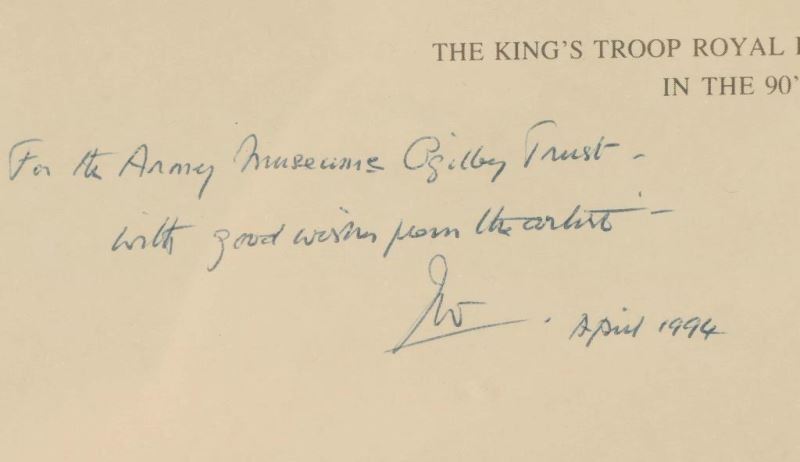 THE KING'S TROOP ROYAL
IN THE 90'
For the Army Museums Ogilby Trust –
with good wishes from the artist –
. April 1994